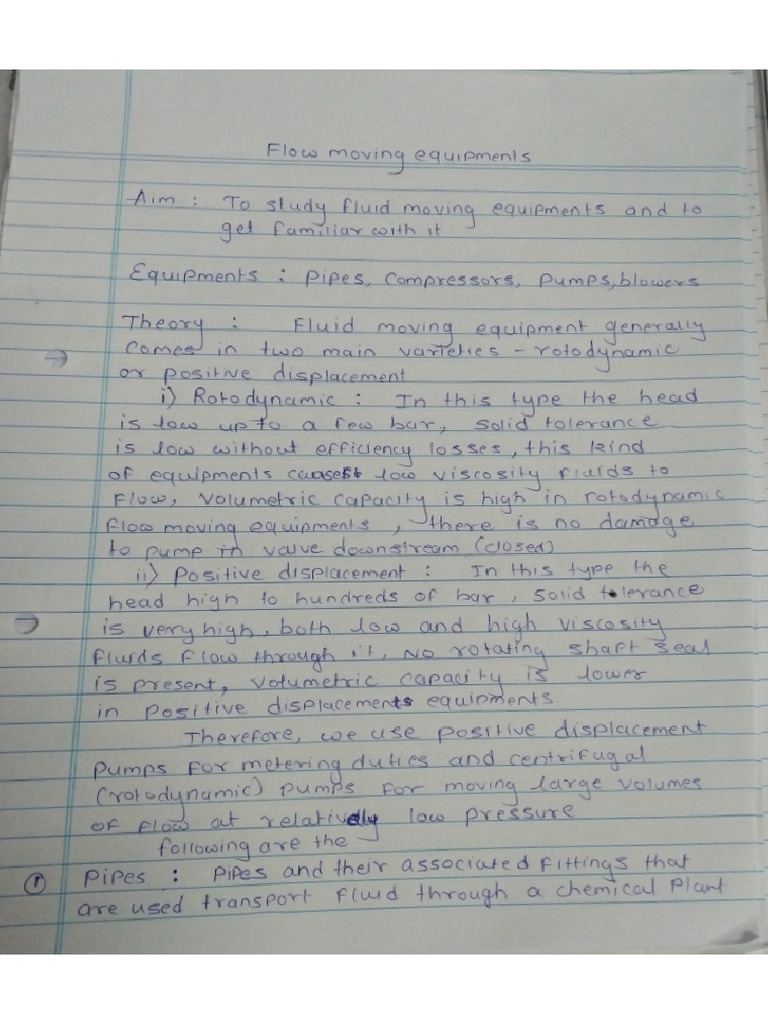 Flow moving equipments
Aim : To study fluid moving equipments and to
get familiar with it
Equipments : Pipes, Compressors, Pumps, blowers
Theory : Fluid moving equipment generally
comes in two main varieties - rotodynamic
or positive displacement
i) Rotodynamic : In this type the head
is low upto a few bar, solid tolerance
is low without efficiency losses, this kind
of equipments causes low viscosity fluids to
flow, volumetric capacity is high in rotodynamic
flow moving equipments, there is no damage
to pump in valve downstream (closed)
ii) Positive displacement : In this type the
head high to hundreds of bar, solid tolerance
is very high, both low and high viscosity
fluids flow through it, no rotating shaft seal
is present, volumetric capacity is lower
in positive displacements equipments
Therefore, we use positive displacement
pumps for metering duties and centrifugal
(rotodynamic) pumps for moving large volumes
of flow at relatively low pressure
following are the
① Pipes : Pipes and their associated fittings that
are used transport fluid through a chemical plant